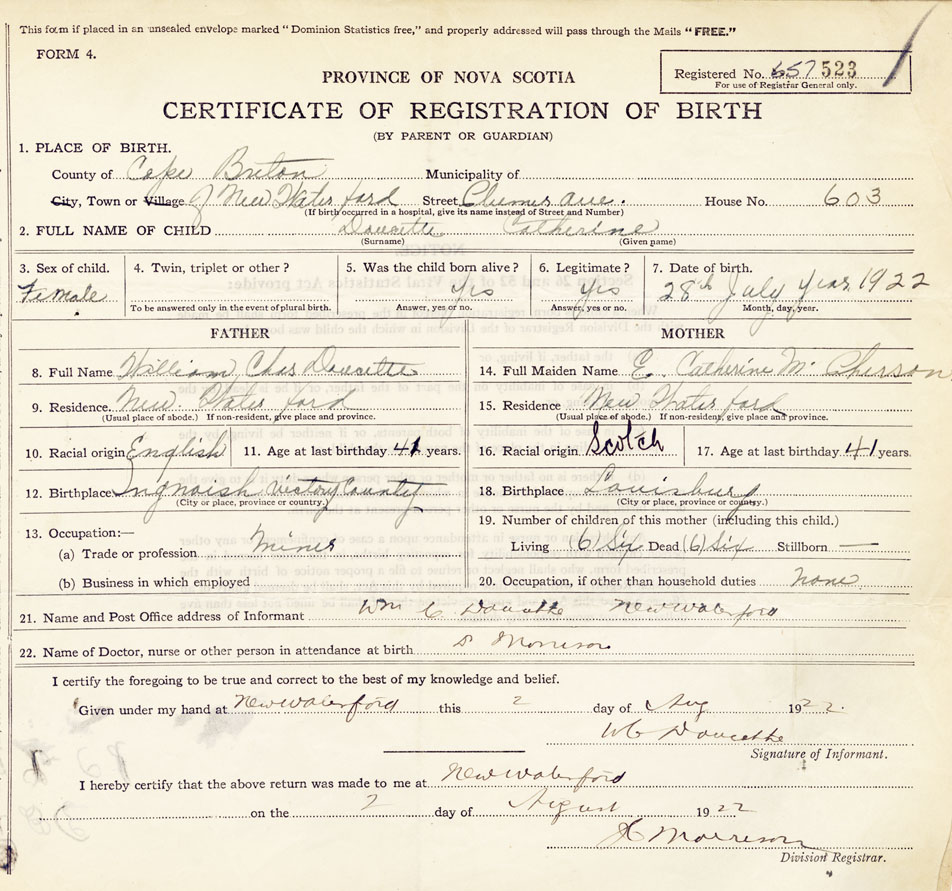 This form if placed in an unsealed envelope marked "Dominion Statistics free," and properly addressed will pass through the Mails "FREE."
FORM 4.
Registered No. 657 523
For use of Registrar General only.
PROVINCE OF NOVA SCOTIA
CERTIFICATE OF REGISTRATION OF BIRTH
(BY PARENT OR GUARDIAN)
1. PLACE OF BIRTH.
County of Cape Breton Municipality of
City, Town or Village of New Waterford Street Ave. House No. 603
(If birth occurred in a hospital, give its name instead of Street and Number)
2. FULL NAME OF CHILD Doucette Catherine
(Surname) (Given name)
3. Sex of child. 4. Twin, triplet or other? 5. Was the child born alive? 6. Legitimate? 7. Date of birth.
Female yes yes 28th July year 1922
To be answered only in the event of plural birth. Answer, yes or no. Answer, yes or no. Month, day, year.
FATHER MOTHER
8. Full Name William Chas Doucette 14. Full Maiden Name E. Catherine Mc Pherson
9. Residence. New Waterford 15. Residence New Waterford
(Usual place of abode.) If non-resident, give place and province. (Usual place of abode.) If non-resident, give place and province.
10. Racial origin English 11. Age at last birthday 41 years. 16. Racial origin Scotch 17. Age at last birthday 41 years.
12. Birthplace Ingnoish Victory County 18. Birthplace Louisburg
(City or place, province or country.) (City or place, province or country.)
13. Occupation:— 19. Number of children of this mother (including this child.)
(a) Trade or profession Miner Living (6) Six Dead (6) Six Stillborn —
(b) Business in which employed 20. Occupation, if other than household duties none
21. Name and Post Office address of Informant Wm C. Doucette New Waterford
22. Name of Doctor, nurse or other person in attendance at birth Morrison
I certify the foregoing to be true and correct to the best of my knowledge and belief.
Given under my hand at New Waterford this 2 day of Aug 1922.
W C Doucette
Signature of Informant.
I hereby certify that the above return was made to me at New Waterford
on the 2 day of August 1922
Morrison
Division Registrar.